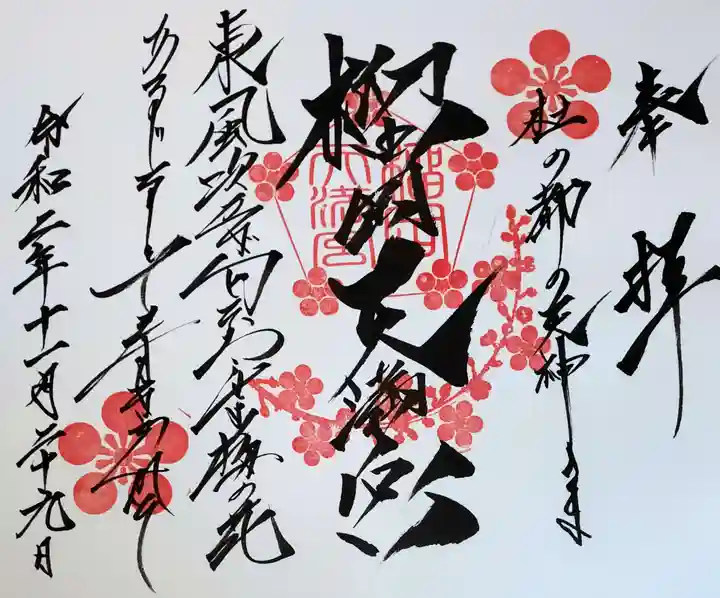 奉拝
杜の都の天神さま
榴岡天満宮
榴岡天満宮
東風吹かば匂ひおこせよ梅の花
あるじなしとて春
令和二年十一月二十九日